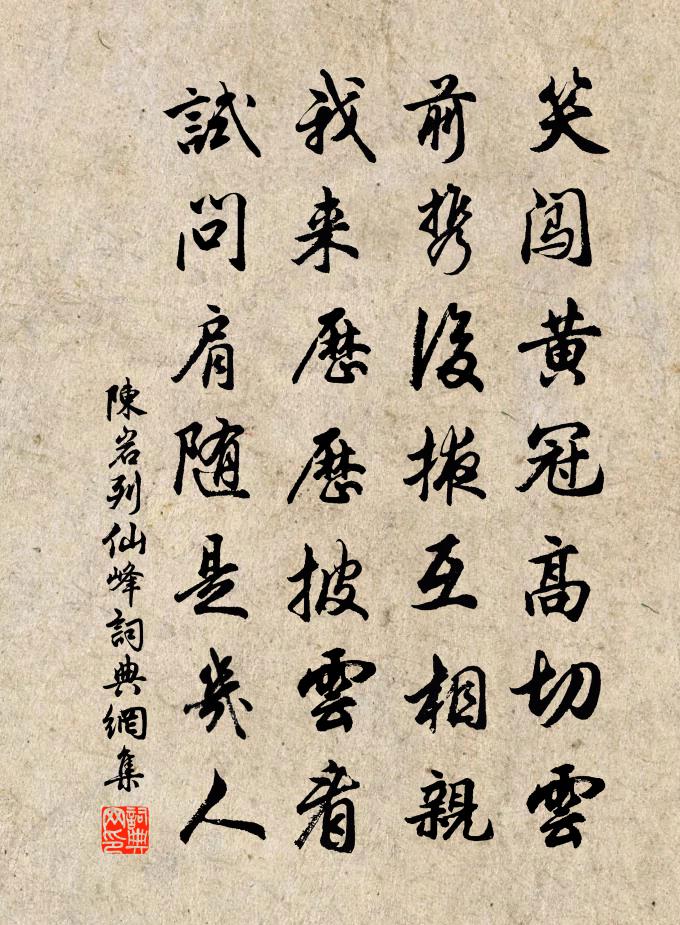 笑闯黄冠高切雲
前携後掖互相親
我来歷歷披雲看
試問肩随是幾人
陳岩列仙峰詞典網集
詞典网印